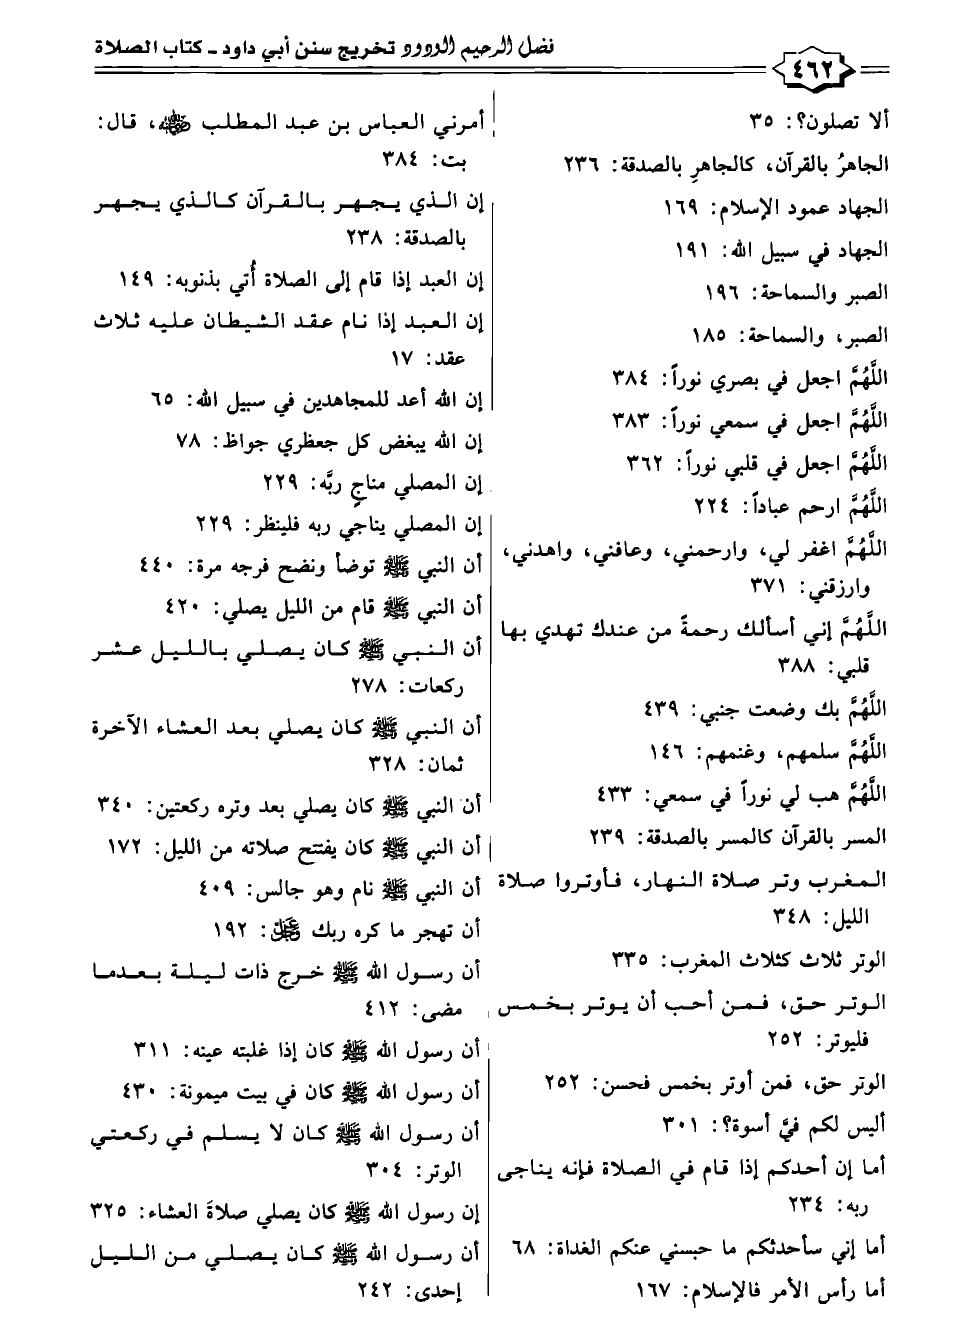 فضل الرحيم الودود تخريج سنن أبي داود - كتاب الصلاة
٤٦٢
ألا تصلون؟: ٣٥
الجاهرُ بالقرآن، كالجاهرِ بالصدقة: ٢٣٦
الجهاد عمود الإسلام: ١٦٩
الجهاد في سبيل الله: ١٩١
الصبر والسماحة: ١٩٦
الصبر، والسماحة: ١٨٥
اللَّهُمَّ اجعل في بصري نوراً: ٣٨٤
اللَّهُمَّ اجعل في سمعي نوراً: ٣٨٣
اللَّهُمَّ اجعل في قلبي نوراً: ٣٦٢
اللَّهُمَّ ارحم عباداً: ٢٢٤
اللَّهُمَّ اغفر لي، وارحمني، وعافني، واهدني،
وارزقني: ٣٧١
اللَّهُمَّ إني أسألك رحمةً من عندك تهدي بها
قلبي: ٣٨٨
اللَّهُمَّ بك وضعت جنبي: ٤٣٩
اللَّهُمَّ سلمهم، وغنمهم: ١٤٦
اللَّهُمَّ هب لي نوراً في سمعي: ٤٣٣
المسر بالقرآن كالمسر بالصدقة: ٢٣٩
المغرب وتر صلاة النهار، فأوتروا صلاة
الليل: ٣٤٨
الوتر ثلاث كثلاث المغرب: ٣٣٥
الوتر حق، فمن أحب أن يوتر بخمس
فليوتر: ٢٥٢
الوتر حق، فمن أوتر بخمس فحسن: ٢٥٢
أليس لكم فيَّ أسوة؟: ٣٠١
أما إن أحدكم إذا قام في الصلاة فإنه يناجي
ربه: ٢٣٤
أما إني سأحدثكم ما حبسني عنكم الغداة: ٦٨
أما رأس الأمر فالإسلام: ١٦٧
أمرني العباس بن عبد المطلب رضي الله عنه، قال:
بت: ٣٨٤
إن الذي يجهر بالقرآن كالذي يجهر
بالصدقة: ٢٣٨
إن العبد إذا قام إلى الصلاة أُتي بذنوبه: ١٤٩
إن العبد إذا نام عقد الشيطان عليه ثلاث
عقد: ١٧
إن الله أعد للمجاهدين في سبيل الله: ٦٥
إن الله يبغض كل جعظري جواظ: ٧٨
إن المصلي مناجٍ ربَّه: ٢٢٩
إن المصلي يناجي ربه فلينظر: ٢٢٩
أن النبي ﷺ توضأ ونضح فرجه مرة: ٤٤٠
أن النبي ﷺ قام من الليل يصلي: ٤٢٠
أن النبي ﷺ كان يصلي بالليل عشر
ركعات: ٢٧٨
أن النبي ﷺ كان يصلي بعد العشاء الآخرة
ثمان: ٣٢٨
أن النبي ﷺ كان يصلي بعد وتره ركعتين: ٣٤٠
أن النبي ﷺ كان يفتتح صلاته من الليل: ١٧٢
أن النبي ﷺ نام وهو جالس: ٤٠٩
أن تهجر ما كره ربك عز وجل: ١٩٢
أن رسول الله ﷺ خرج ذات ليلة بعدما
مضى: ٤١٢
أن رسول الله ﷺ كان إذا غلبته عينه: ٣١١
أن رسول الله ﷺ كان في بيت ميمونة: ٤٣٠
أن رسول الله ﷺ كان لا يسلم في ركعتي
الوتر: ٣٠٤
إن رسول الله ﷺ كان يصلي صلاةَ العشاء: ٣٢٥
أن رسول الله ﷺ كان يصلي من الليل
إحدى: ٢٤٢